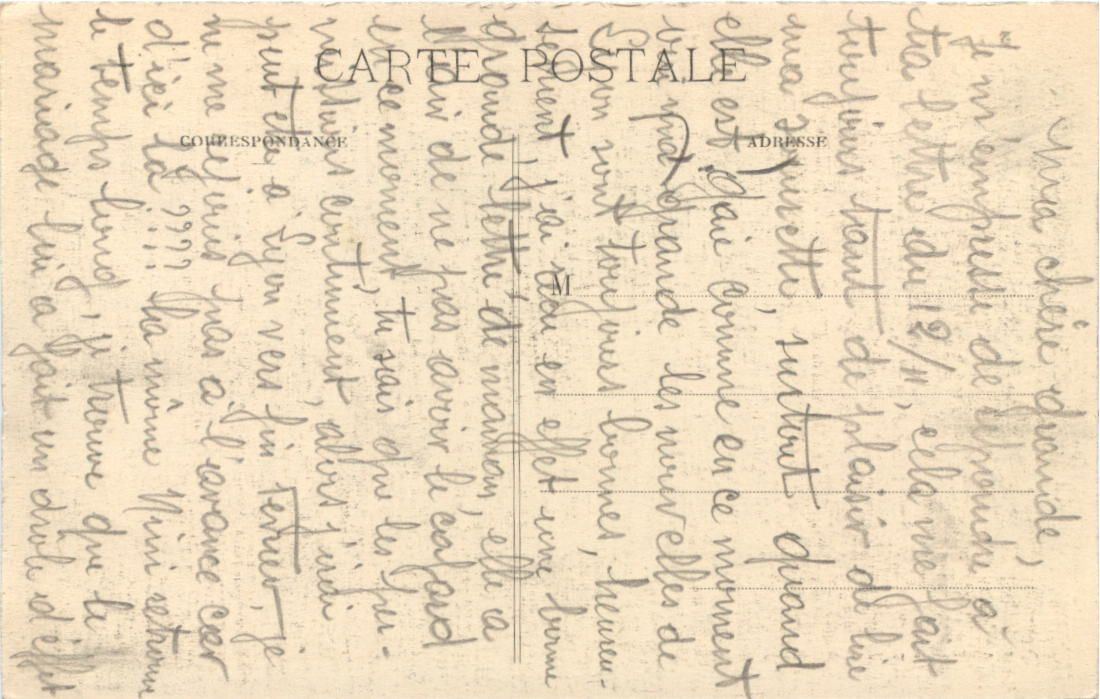 CARTE POSTALE
CORRESPONDANCE
ADRESSE
M
2
Ma chère grande,
Je m'empresse de répondre à
ta lettre du 12/11, cela me fait
toujours tant de plaisir de lire
ma Jusette, surtout quand
elle est gaie comme en ce moment
ma grande les nouvelles de
sont toujours bonnes, heureu-
sement j'ai vu en effet une bonne
grande lettre de maman, elle a
de ne pas avoir le cafard
en ce moment, tu sais que les per-
missions continuent, alors j'irai
peut être à Lyon vers fin février, je
ne me réjouis pas à l'avance car
d'ici là ???! La môme Mimi
le temps long, je trouve que le
mariage lui a fait un drôle d'effet